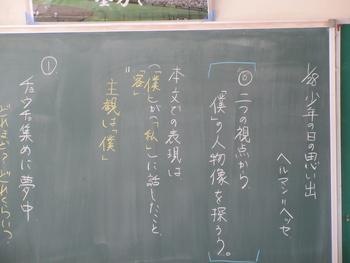 1/8 少年の日の思い出
ヘルマン=ヘッセ
◎二つの視点から
「僕」の人物像を探ろう。
本文での表現は
(「僕」が「私」に話したこと)
客
主観は「僕」
①
チョウチョ集めに夢中
どれほど?どれくらい?